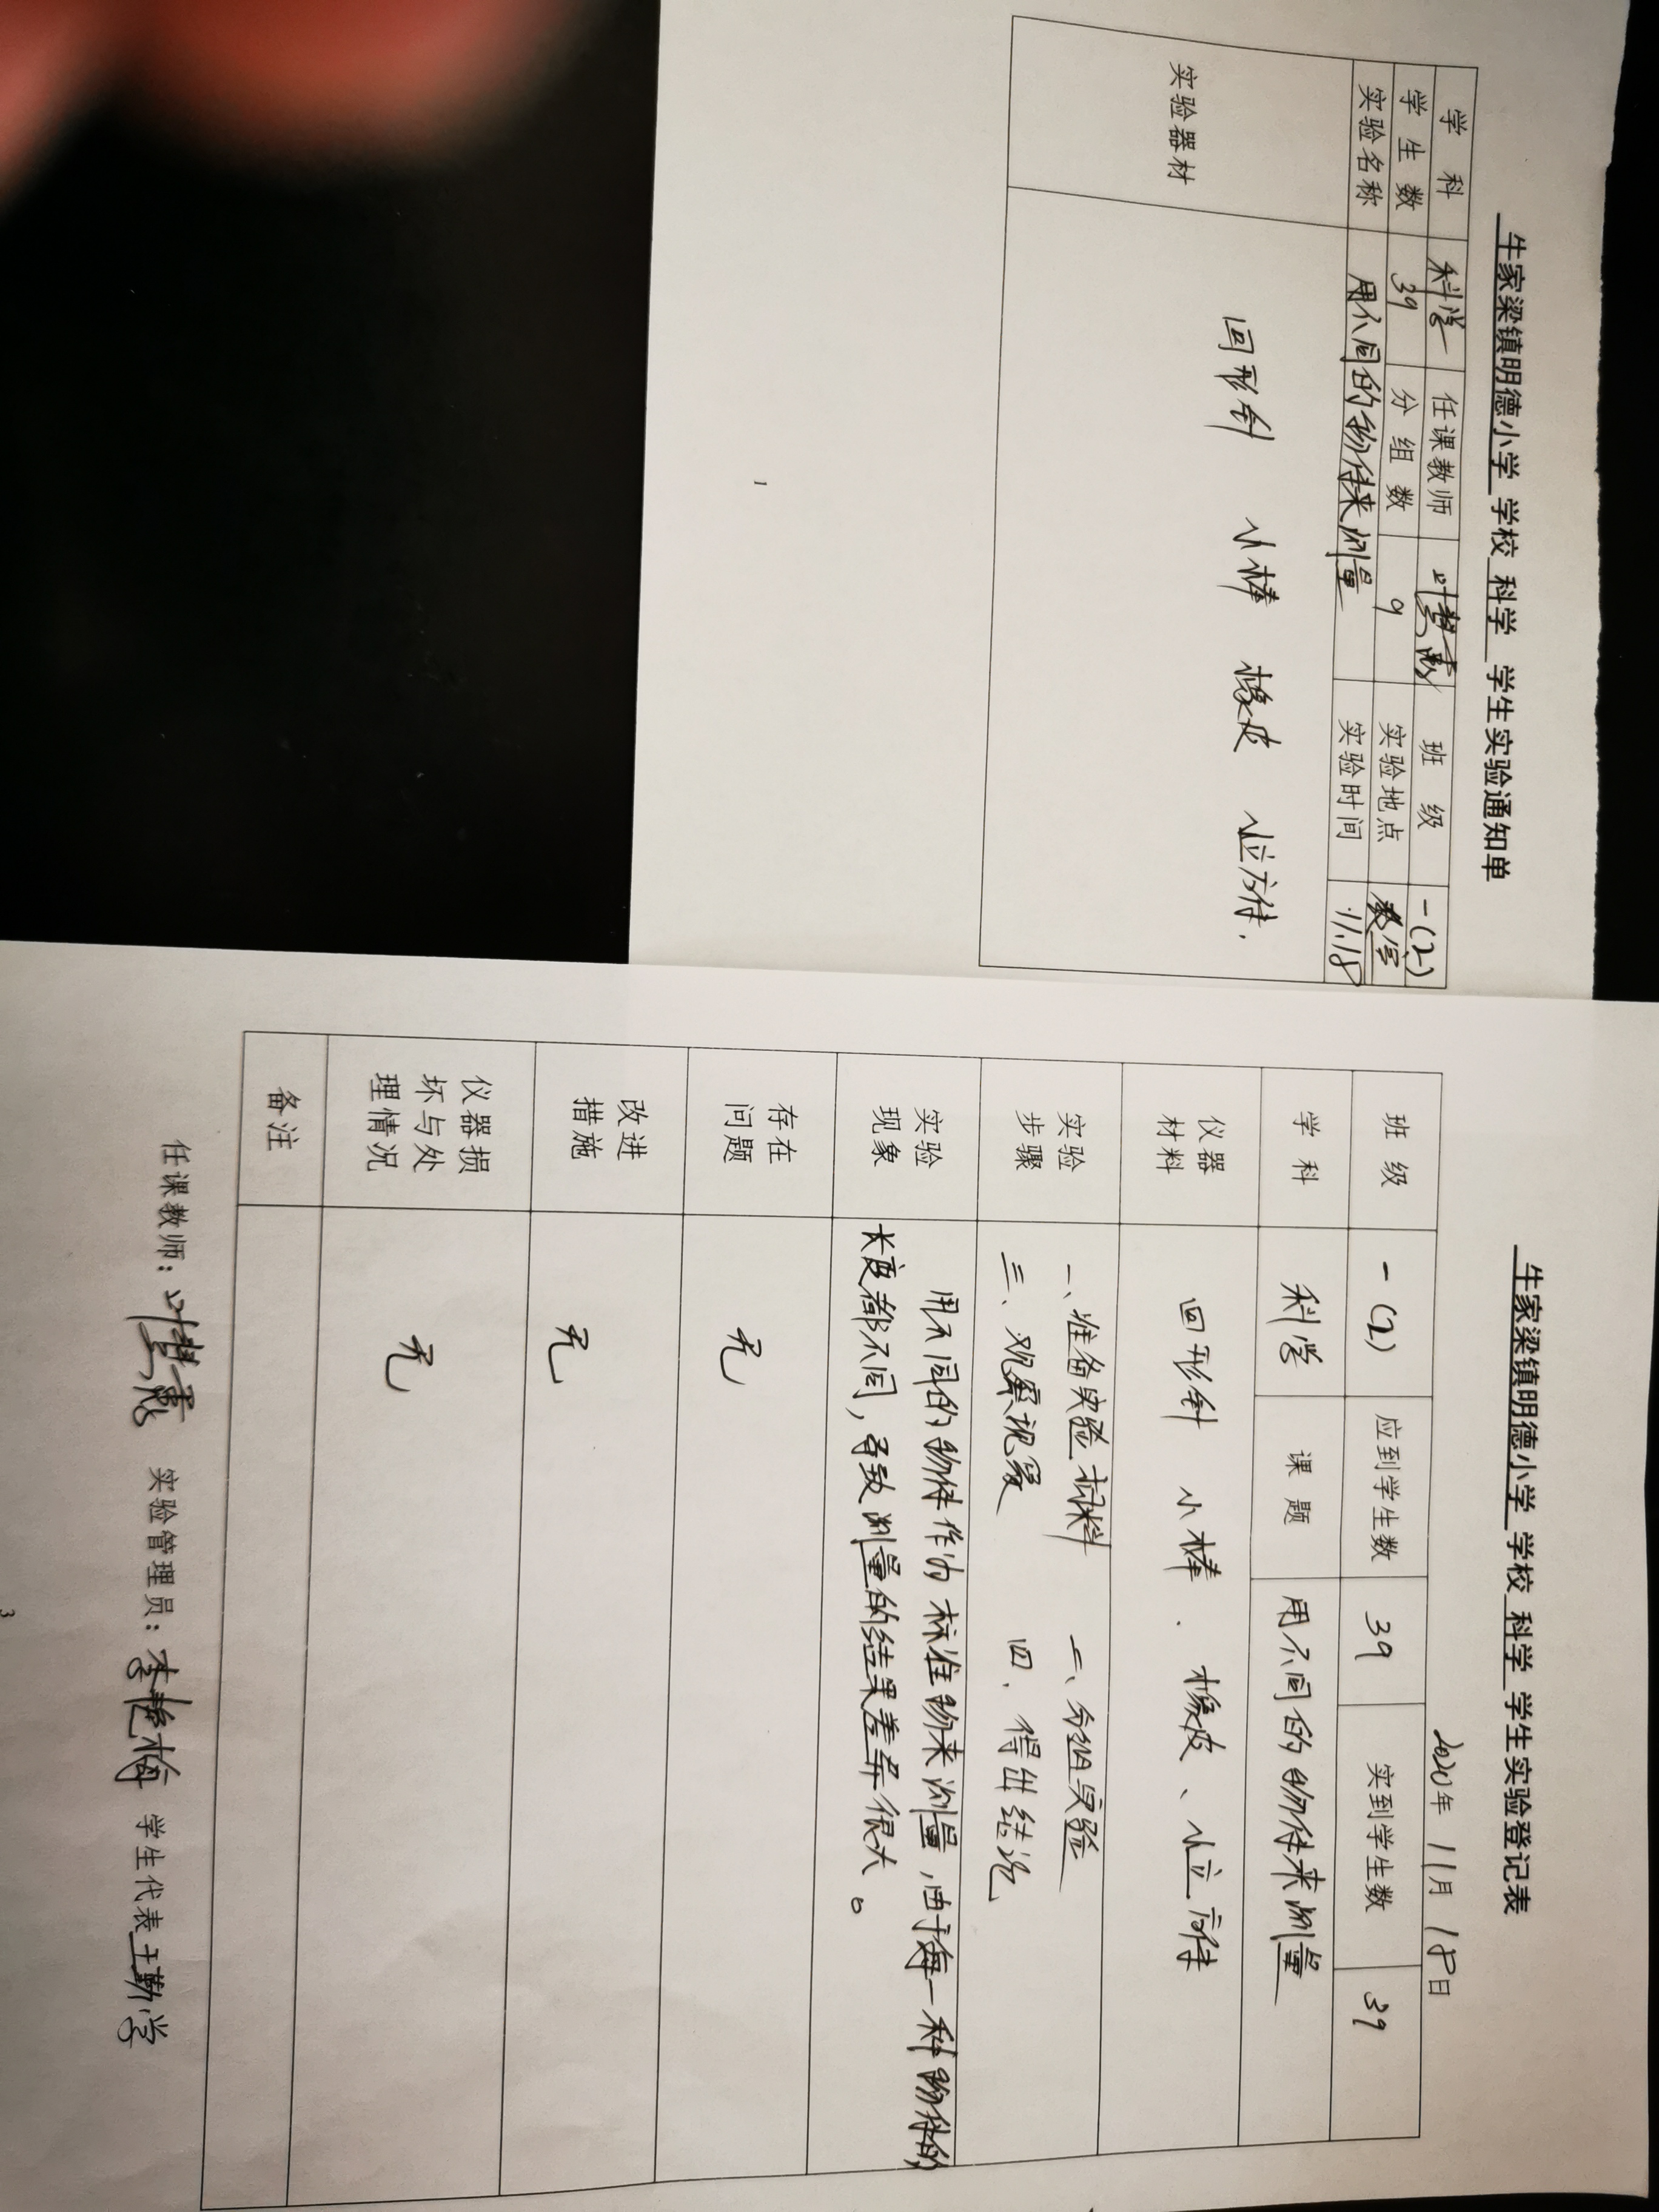 牛家梁镇明德小学 学校 科学 学生实验通知单
学 科 科学 任课教师 叶慧 班 级 一(2)
学 生 数 39 分 组 数 9 实验地点 教室
实验名称 用不同的物体来测量 实验时间 11.18
实验器材 回形针 小棒 橡皮 小立方体.
1
牛家梁镇明德小学 学校 科学 学生实验登记表
2020年 11月 18日
班 级 一(2) 应到学生数 39 实到学生数 39
学 科 科学 课 题 用不同的物体来测量
仪器材料 回形针 小棒 . 橡皮 、 小立方体
实验步骤 一、准备实验材料 二、分组实验
三、观察现象 四、得出结论
实验现象 用不同的物体作为标准物来测量,由于每一种物体的
长度都不同,导致测量的结果差异很大。
存在问题 无
改进措施 无
仪器损坏与处理情况 无
备注
任课教师: 叶慧 实验管理员: 李艳梅 学生代表 王勤学
3